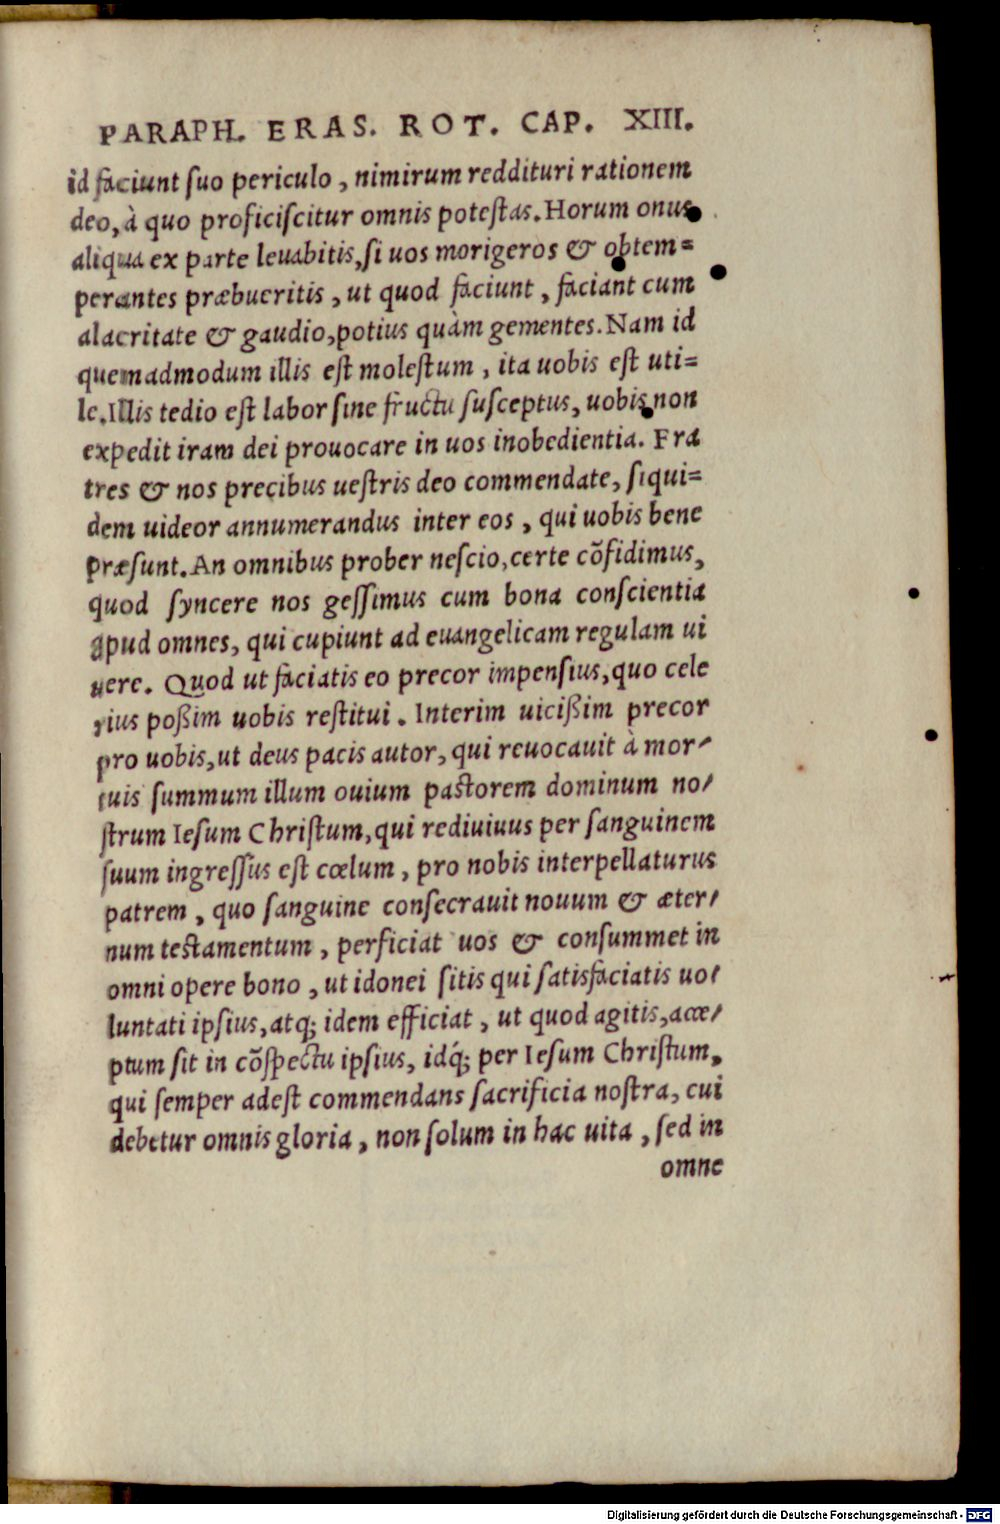 PARAPH. ERAS. ROT. CAP. XIII.
id faciunt suo periculo, nimirum reddituri rationem
deo, à quo proficiscitur omnis potestas. Horum onus
aliqua ex parte leuabitis, si uos morigeros & obtem=
perantes præbueritis, ut quod faciunt, faciant cum
alacritate & gaudio, potius quàm gementes. Nam id
quemadmodum illis est molestum, ita uobis est uti=
le. Illis tedio est labor sine fructu susceptus, uobis non
expedit iram dei prouocare in uos inobedientia. Fra
tres & nos precibus uestris deo commendate, siqui=
dem uideor annumerandus inter eos, qui uobis bene
præsunt. An omnibus prober nescio, certe cõfidimus,
quod syncere nos gessimus cum bona conscientia
apud omnes, qui cupiunt ad euangelicam regulam ui
uere. Quod ut faciatis eo precor impensius, quo cele
rius poßim uobis restitui. Interim uicißim precor
pro uobis, ut deus pacis autor, qui reuocauit à mor-
tuis summum illum ouium pastorem dominum no-
strum Iesum Christum, qui rediuiuus per sanguinem
suum ingressus est cœlum, pro nobis interpellaturus
patrem, quo sanguine consecrauit nouum & æter-
num testamentum, perficiat uos & consummet in
omni opere bono, ut idonei sitis qui satisfaciatis uo-
luntati ipsius, atq; idem efficiat, ut quod agitis, acce-
ptum sit in cõspectu ipsius, idq́; per Iesum Christum,
qui semper adest commendans sacrificia nostra, cui
debetur omnis gloria, non solum in hac uita, sed in
omne
Digitalisierung gefördert durch die Deutsche Forschungsgemeinschaft - DFG